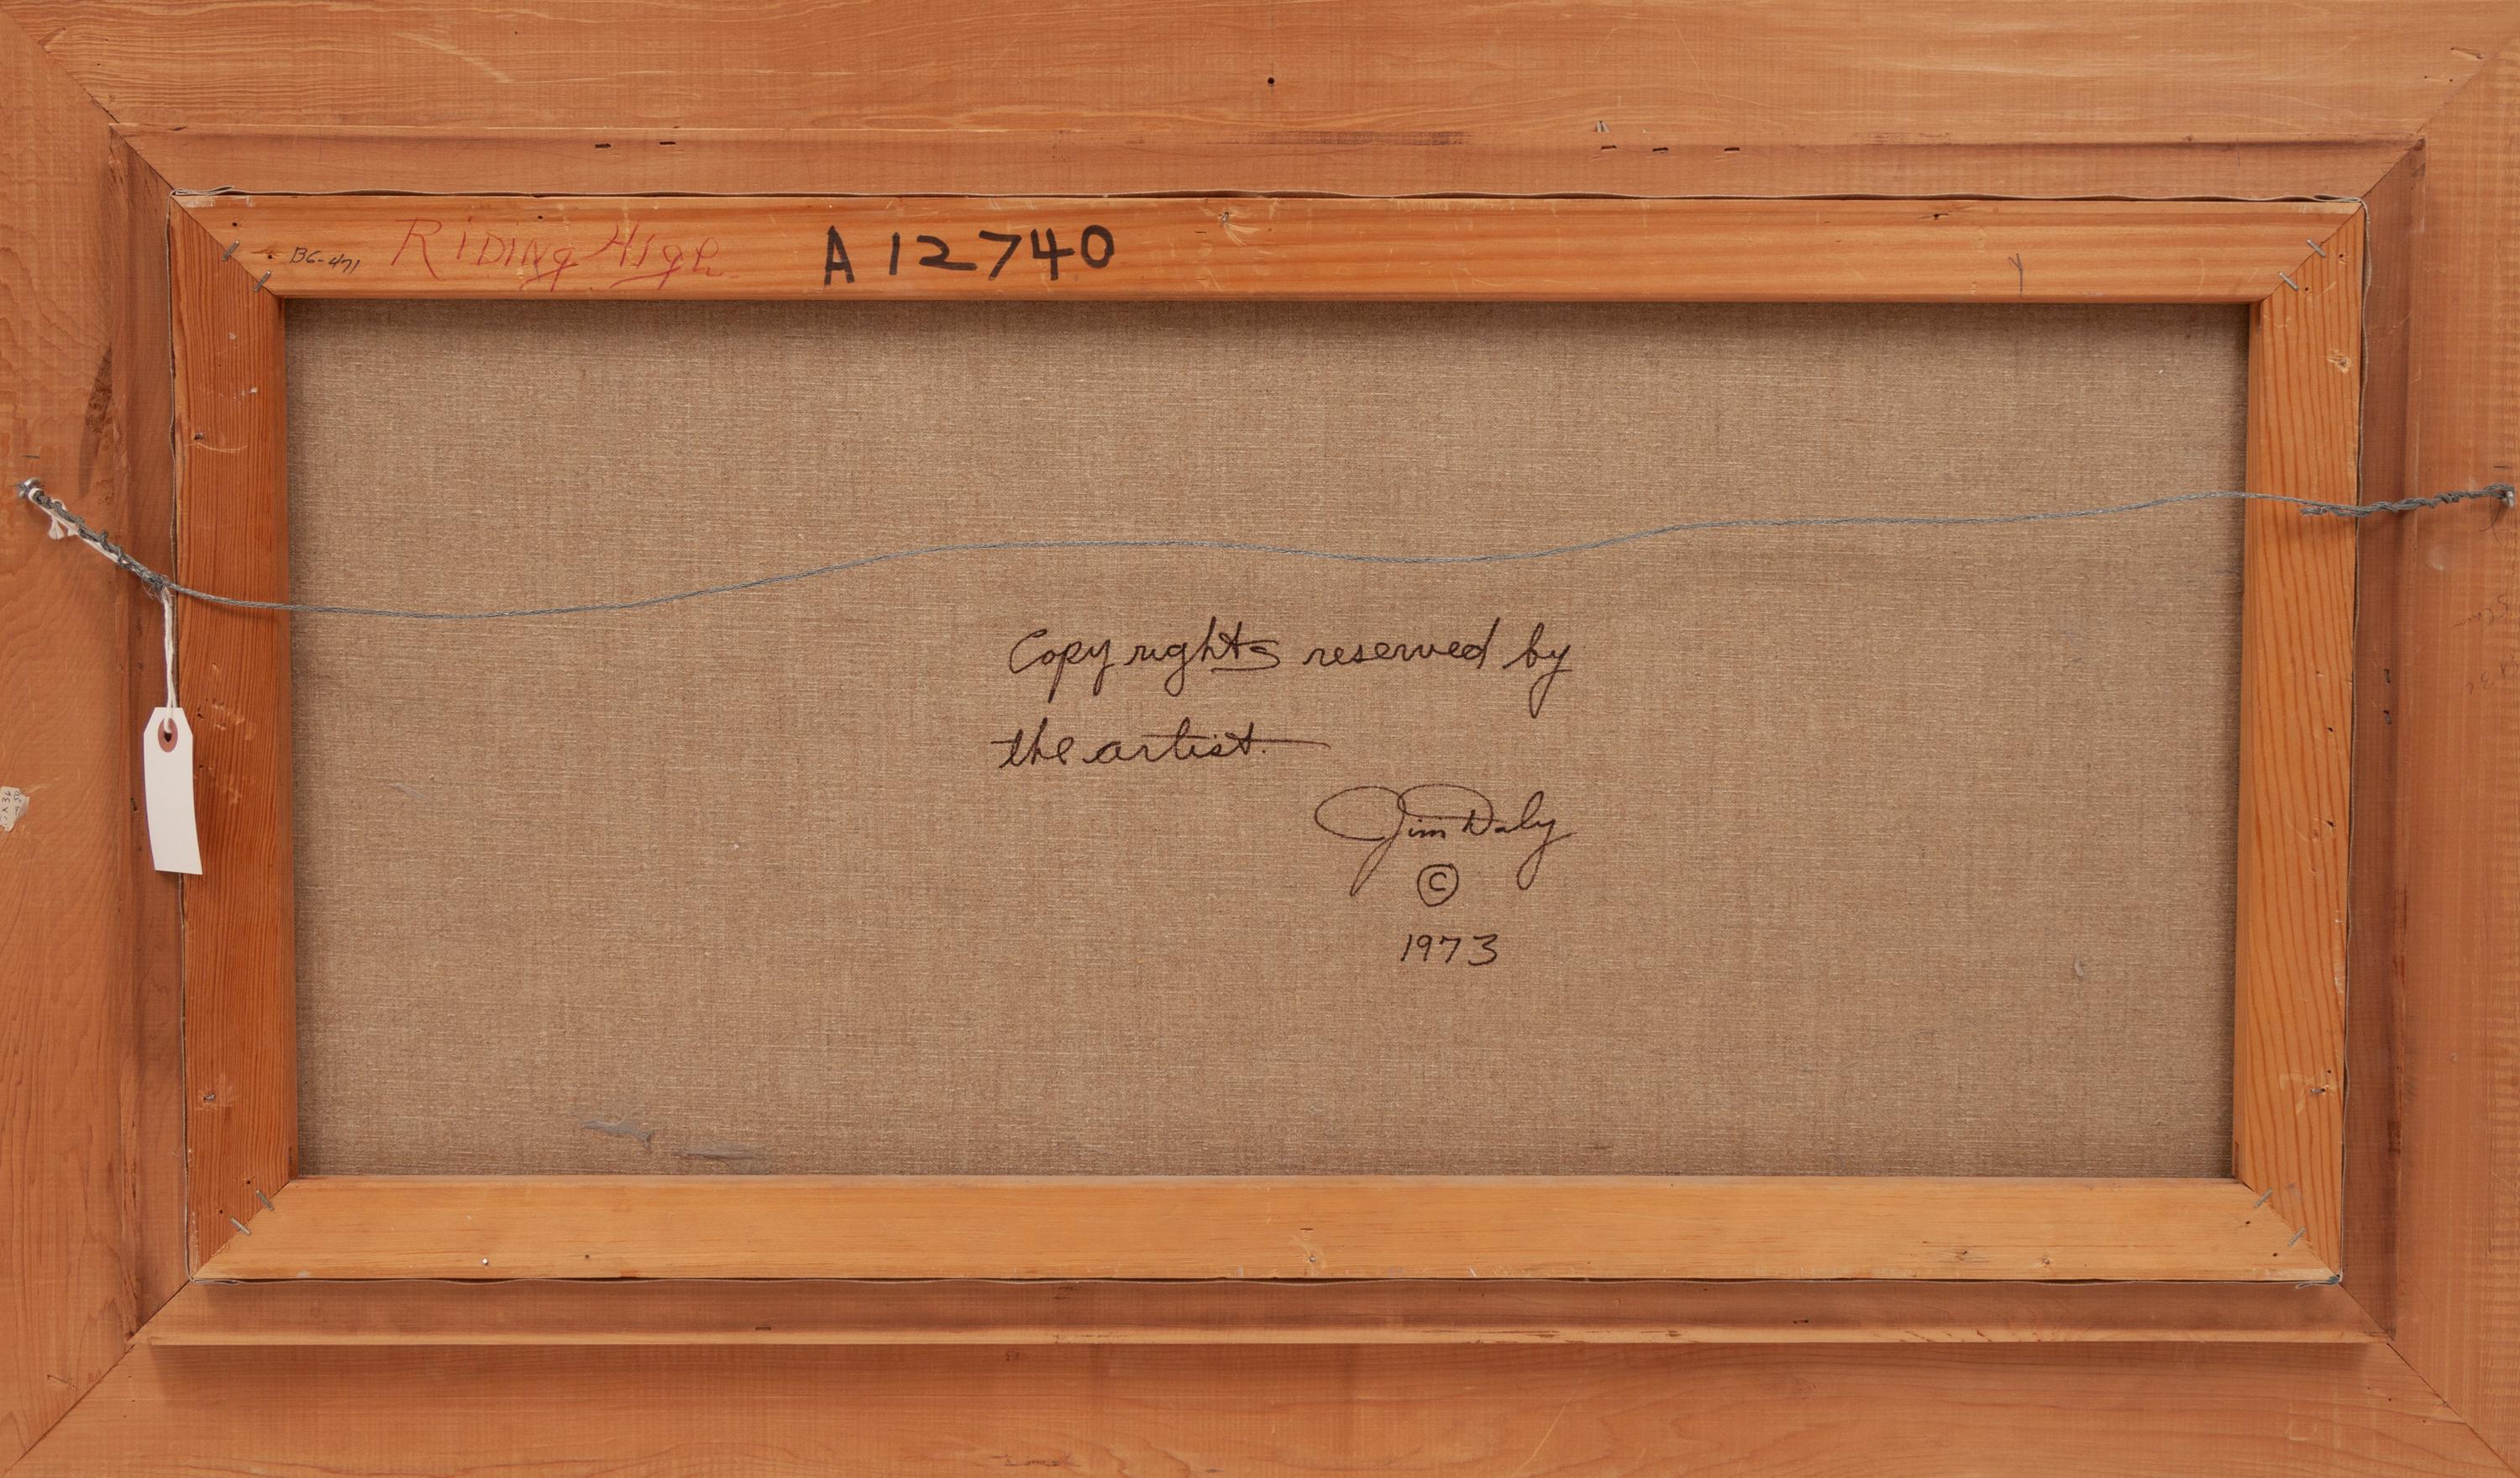 BG-471 Riding High A 12740
Copyrights reserved by
the artist.
Jim Daly
©
1973